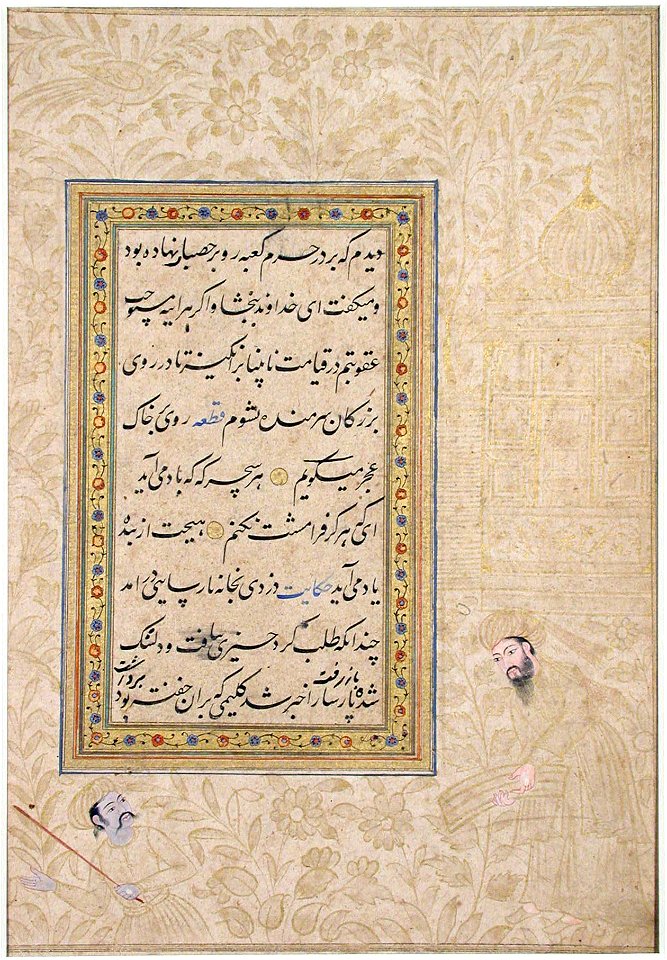 دیدم که بر در حرم کعبه روی بر حصبا نهاده بود
و میکفت ای خداوند ببخشا و اکر هراینه مستوجب
عقوبتم در قیامت نابینا برنکیز تا در روی
بزرکان شرمنده نشوم قطعه روی بر خاک
عجز میکویم هر سحر که که باد می آید
ای که هرکز فرامشت نکنم هیچت از بنده
یاد می آید حکایت دزدی بخانه پارسایی در امد
چندانکه طلب کرد چیزی نیافت و دلتنک
شد پارسا را خبر شد کلیمی که بران خفته بود
برداشت